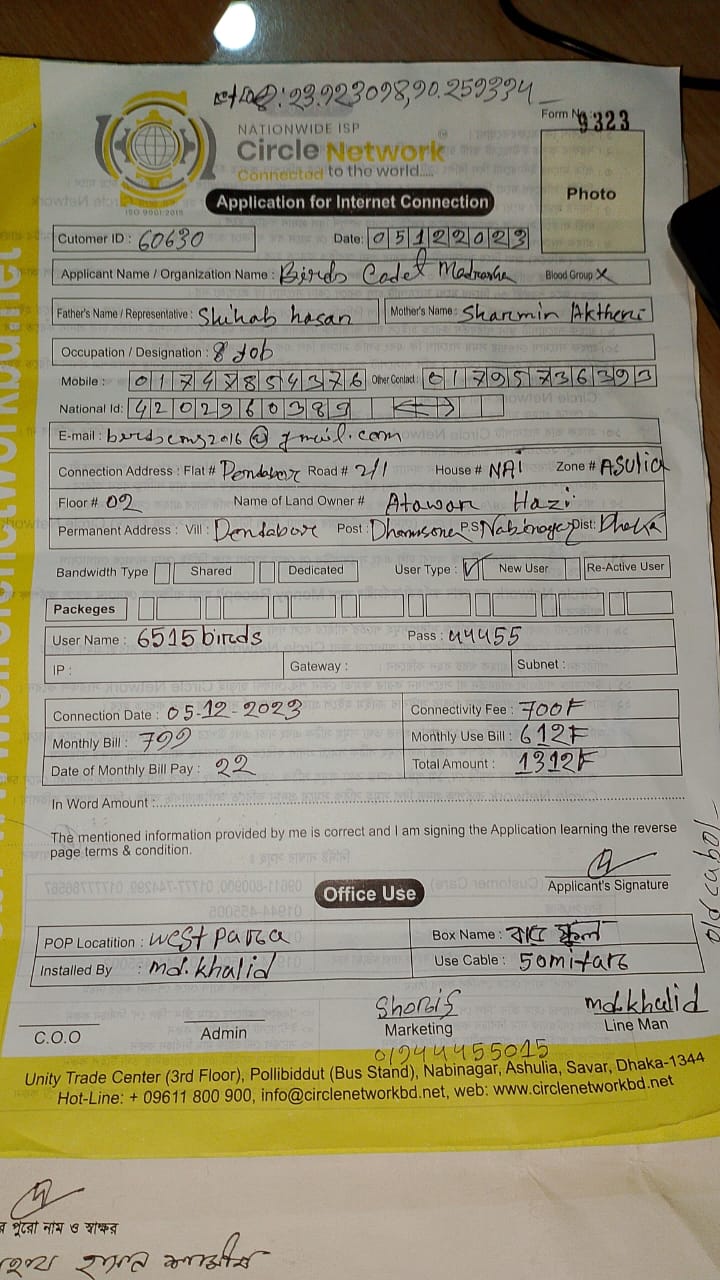 : 23.923098,90.259334
Form No: 9323
NATIONWIDE ISP
Circle Network
Connected to the world....
ISO 9001:2015
Photo
Application for Internet Connection
Cutomer ID : 60630 Date: 05122023
Applicant Name / Organization Name : Birds Cadet Madrasha Blood Group X
Father's Name / Representative : Shihab hasan Mother's Name : Sharmin
Occupation / Designation : Job
Mobile : 01747854376 Other Contact : 01795736393
National Id: 4202960389
E-mail : birdscms2016@gmail.com
Connection Address : Flat # Dendabor Road # 2/1 House # NAI Zone # ASulia
Floor # 02 Name of Land Owner # Atawar Hazi
Permanent Address : Vill : Dendabor Post : Dhamsona P.S Nabinagar Dist: Dhaka
Bandwidth Type Shared Dedicated User Type : New User Re-Active User
Packeges
User Name : 6515birds Pass : 44455
IP : Gateway : Subnet :
Connection Date : 05-12-2023 Connectivity Fee : 700
Monthly Bill : 799 Monthly Use Bill : 612
Date of Monthly Bill Pay : 22 Total Amount : 1312
In Word Amount :
The mentioned information provided by me is correct and I am signing the Application learning the reverse
page terms & condition.
Applicant's Signature
Office Use
POP Locatition : west para Box Name :
Installed By : md.khalid Use Cable : 50mitar
md.khalid
C.O.O Admin Marketing Line Man
01944455015
Unity Trade Center (3rd Floor), Pollibiddut (Bus Stand), Nabinagar, Ashulia, Savar, Dhaka-1344
Hot-Line: + 09611 800 900, info@circlenetworkbd.net, web: www.circlenetworkbd.net
পুরো নাম ও স্বাক্ষর